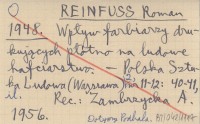 REINFUSS Roman
1948. Wpływ farbiarzy dru-
kujących płótno na ludowe
hafciarstwo. - Polska Sztu-
ka Ludowa (Warszawa) nr 11-12: 40-41,
il. Rec: Zambrzycka A.
1956.